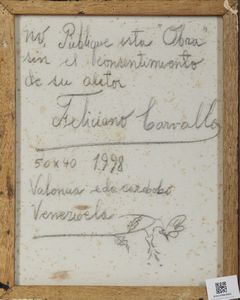 no, Publique esta "Obra"
sin el consentimiento
de su autor
Feliciano Carvallo
50 x 40 1998
Valencia edo carabobo
Venezuela